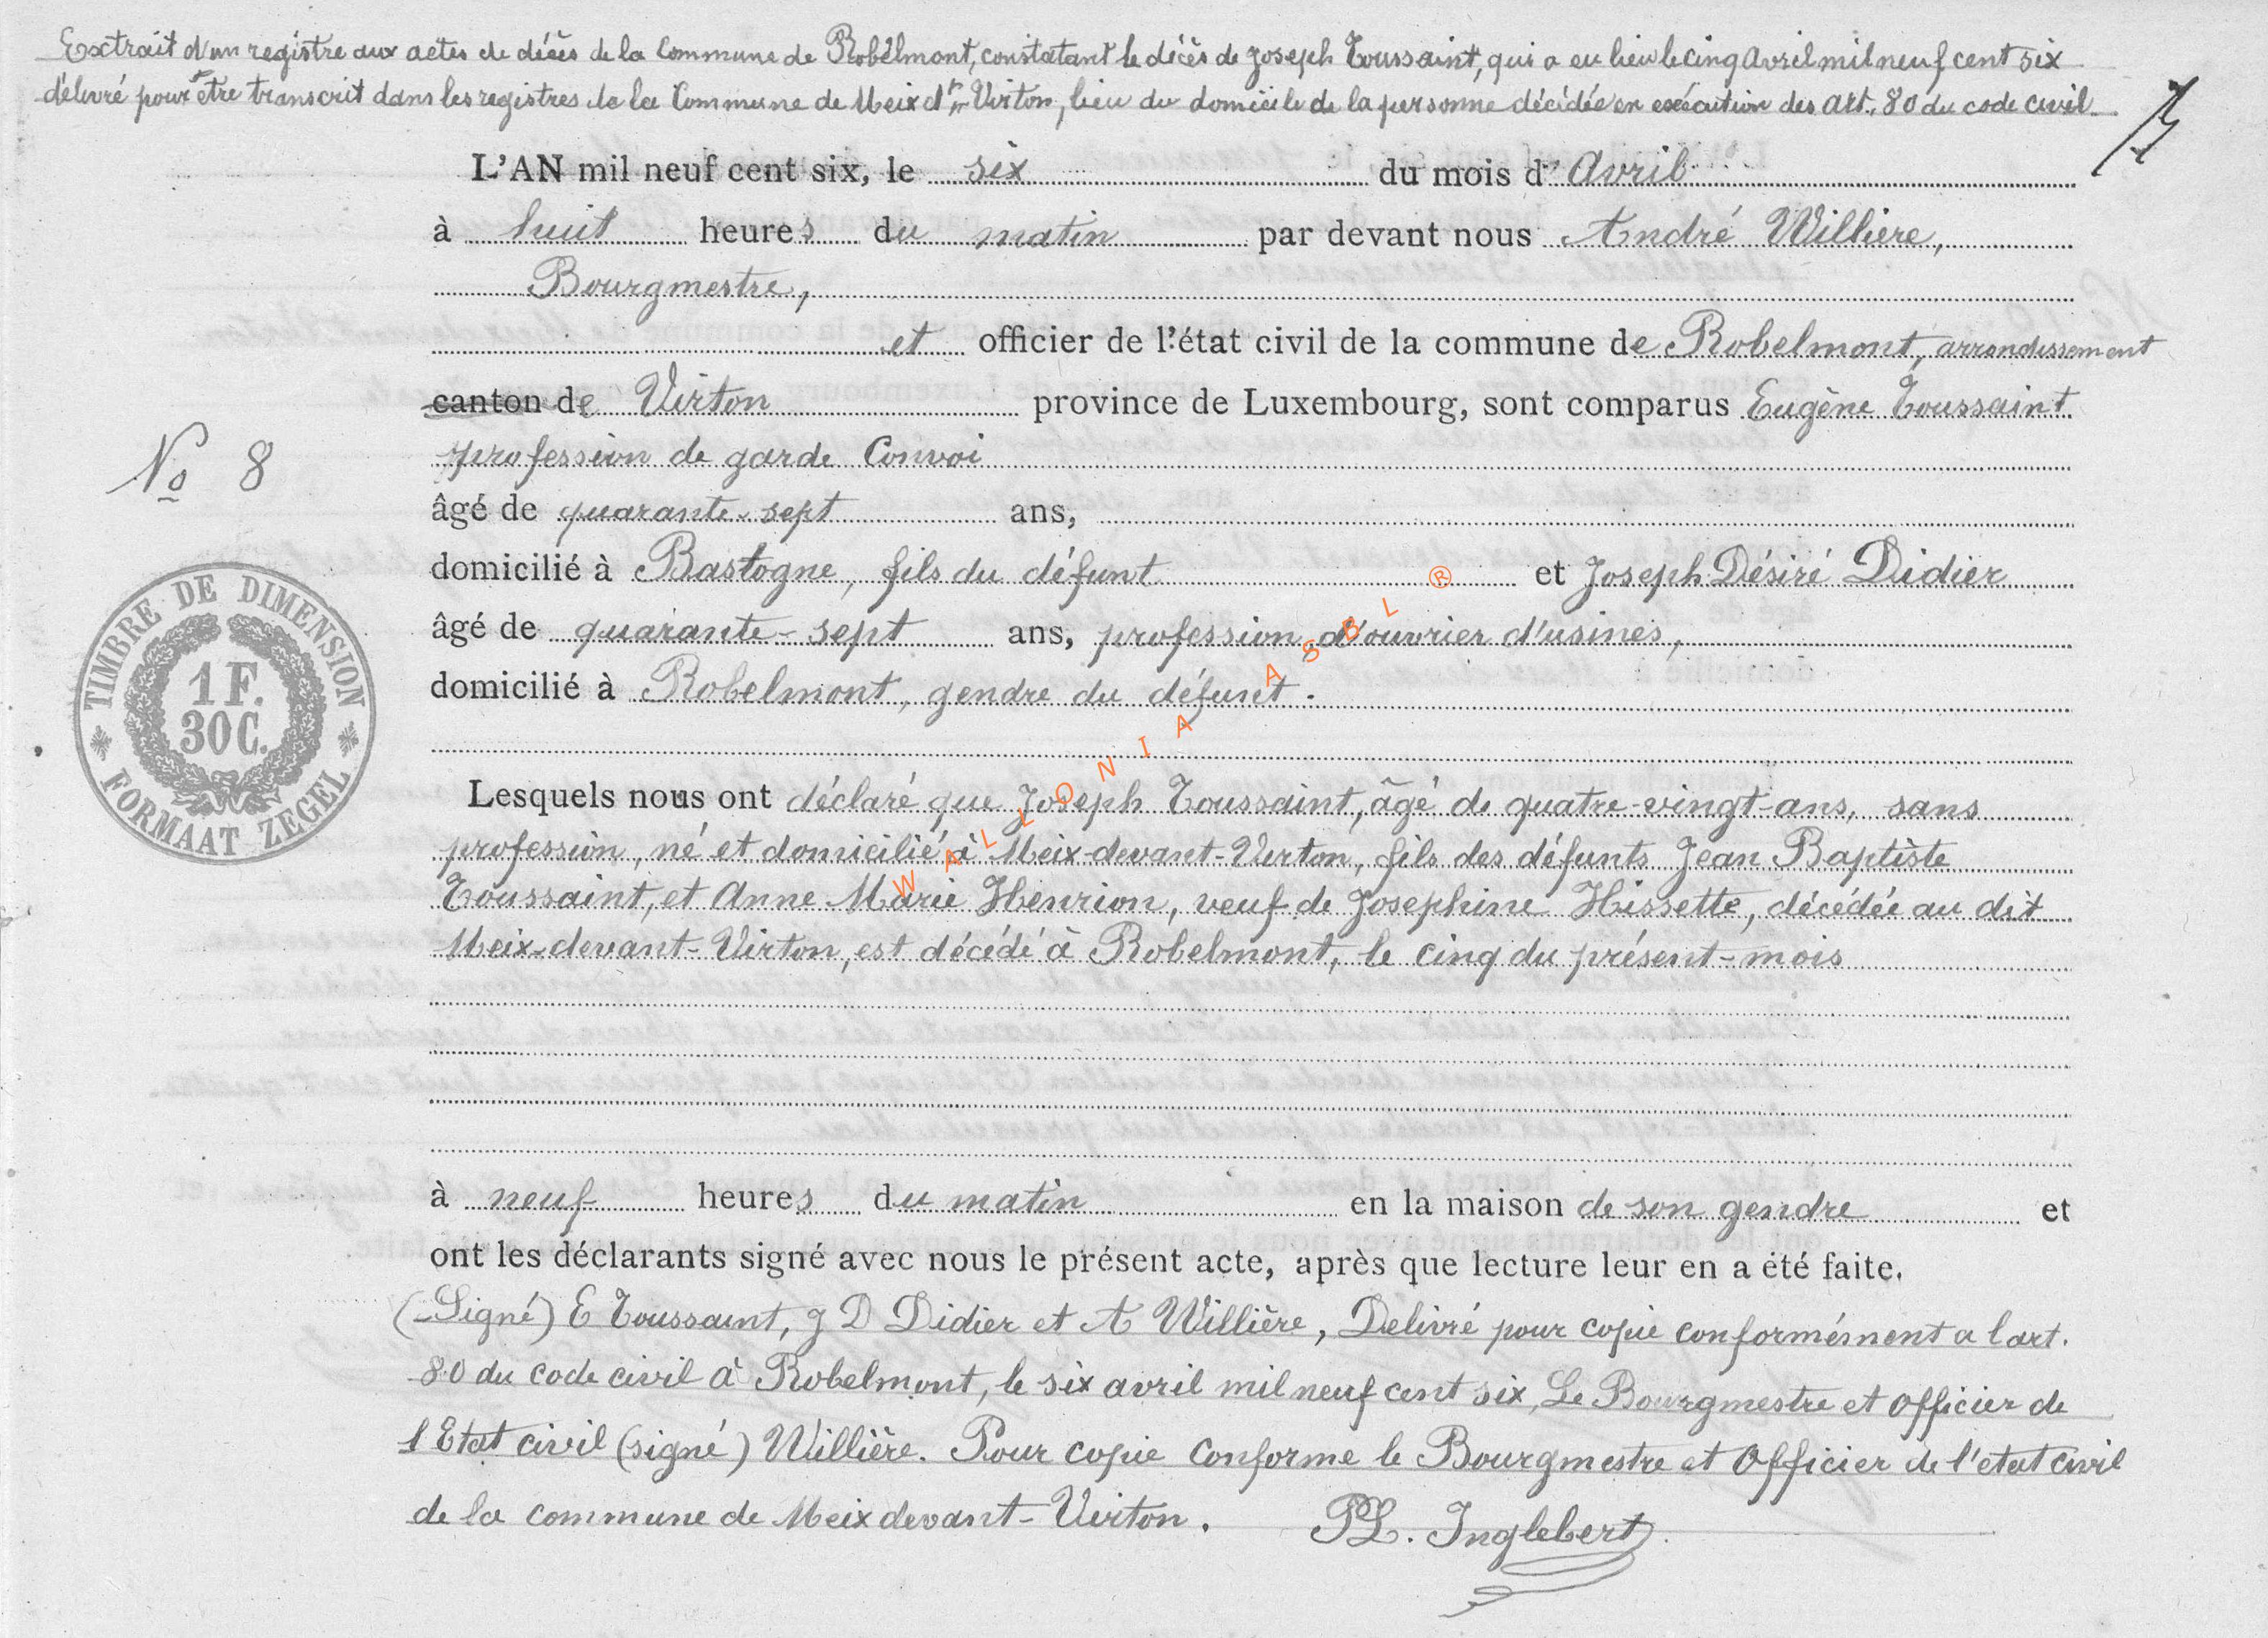 Extrait d'un registre aux actes de décès de la Commune de Robelmont, constatant le décès de Joseph Toussaint, qui a eu lieu le cinq Avril mil neuf cent six
délivré pour être transcrit dans les registres de la Commune de Meix dt Virton, lieu du domicile de la personne décédée en exécution des art. 80 du code civil
L'AN mil neuf cent six, le six du mois d' Avril
à huit heures du matin par devant nous André Willière,
Bourgmestre,
et officier de l'état civil de la commune de Robelmont, arrondissement
canton de Virton province de Luxembourg, sont comparus Eugène Toussaint
profession de garde Convoi
No 8
âgé de quarante-sept ans,
domicilié à Bastogne, fils du défunt et Joseph Désiré Didier
âgé de quarante-sept ans, profession d'ouvrier d'usines,
domicilié à Robelmont, gendre du défunt.
TIMBRE DE DIMENSION
1 F.
30 C.
FORMAAT ZEGEL
WALLONIA ASBL ®
Lesquels nous ont déclaré que Joseph Toussaint, âgé de quatre-vingt-ans, sans
profession, né et domicilié à Meix-devant-Virton, fils des défunts Jean Baptiste
Toussaint, et Anne Marie Henrion, veuf de Josephine Hissette, décédée au dit
Meix-devant-Virton, est décédé à Robelmont, le cinq du présent-mois
à neuf heures du matin en la maison de son gendre et
ont les déclarants signé avec nous le présent acte, après que lecture leur en a été faite.
(Signé) E Toussaint, J D Didier et A Willière, Delivré pour copie conformément a lart.
80 du code civil à Robelmont, le six avril mil neuf cent six, Le Bourgmestre et officier de
l Etat civil (signé) Willière. Pour copie conforme le Bourgmestre et Officier de l'etat civil
de la commune de Meix devant-Virton. PL. Inglebert